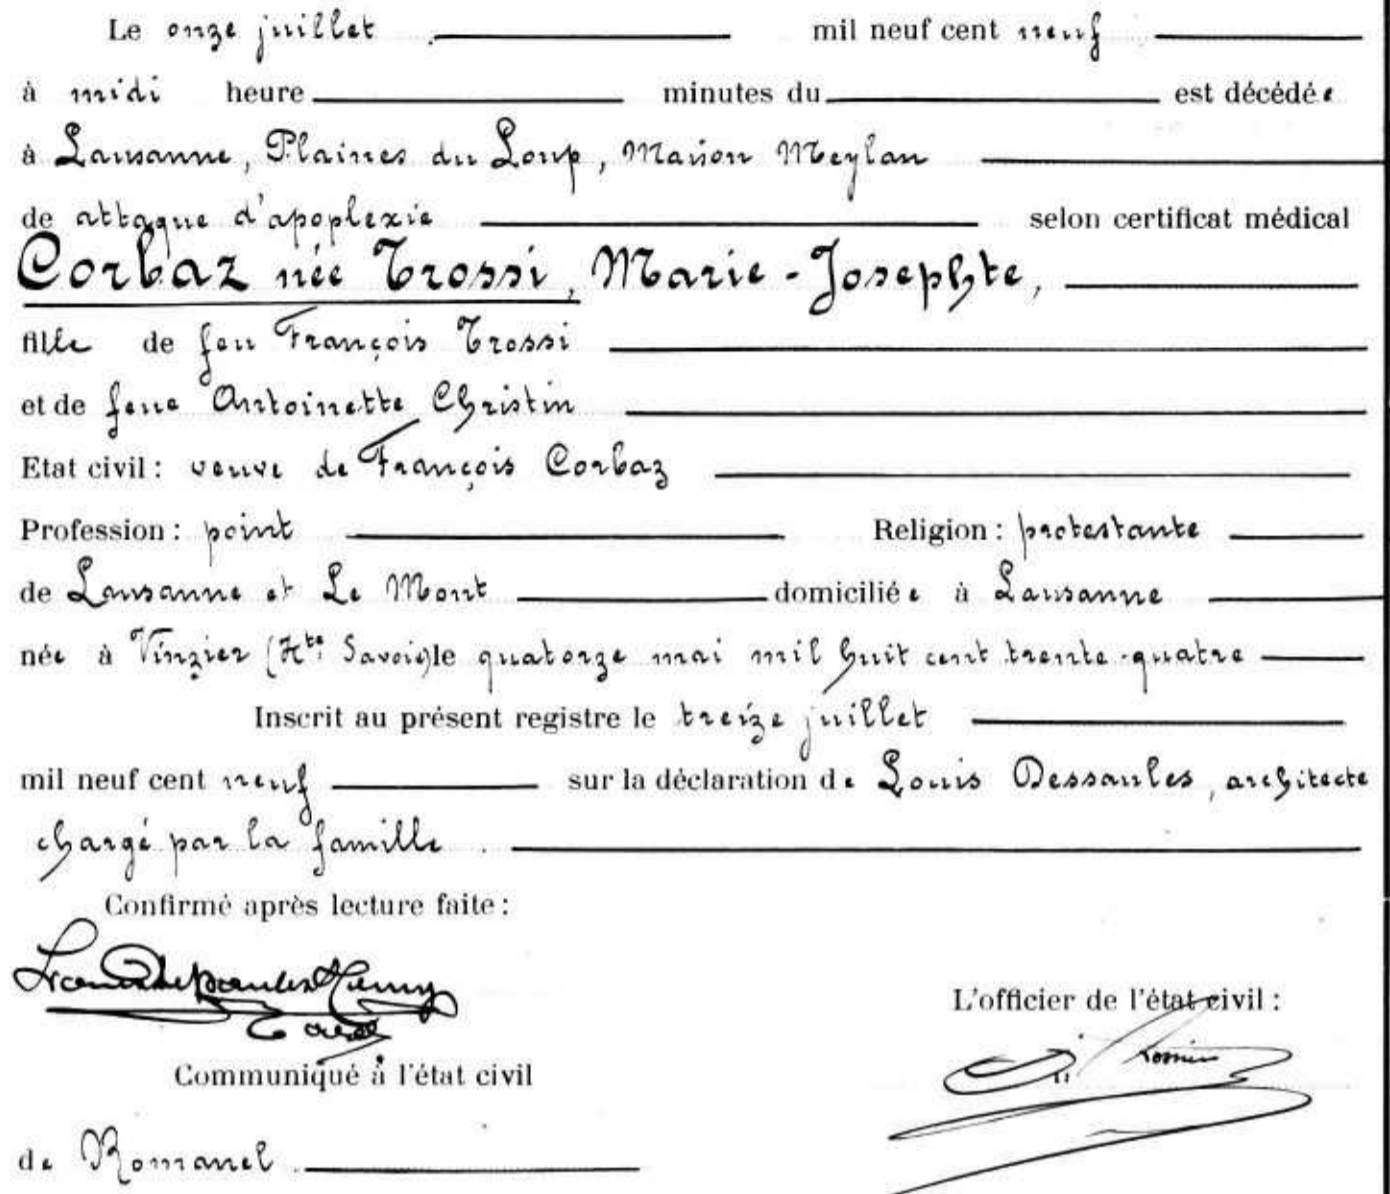 Le onze juillet mil neuf cent neuf
à midi heure minutes du est décédée
à Lausanne, Plaines du Loup, Maison Meylan
de attaque d'apoplexie selon certificat médical
Corbaz née Trossi, Marie-Josephte,
fille de feu François Trossi
et de feue Antoinette Christin
Etat civil : veuve de François Corbaz
Profession : point Religion : protestante
de Lausanne et Le Mont domiciliée à Lausanne
née à Vinzier (Hte Savoie) le quatorze mai mil huit cent trente-quatre
Inscrit au présent registre le treize juillet
mil neuf cent neuf sur la déclaration de Louis Dessaules, architecte
chargé par la famille.
Confirmé après lecture faite :
L'officier de l'état civil :
Communiqué à l'état civil
de Romanel